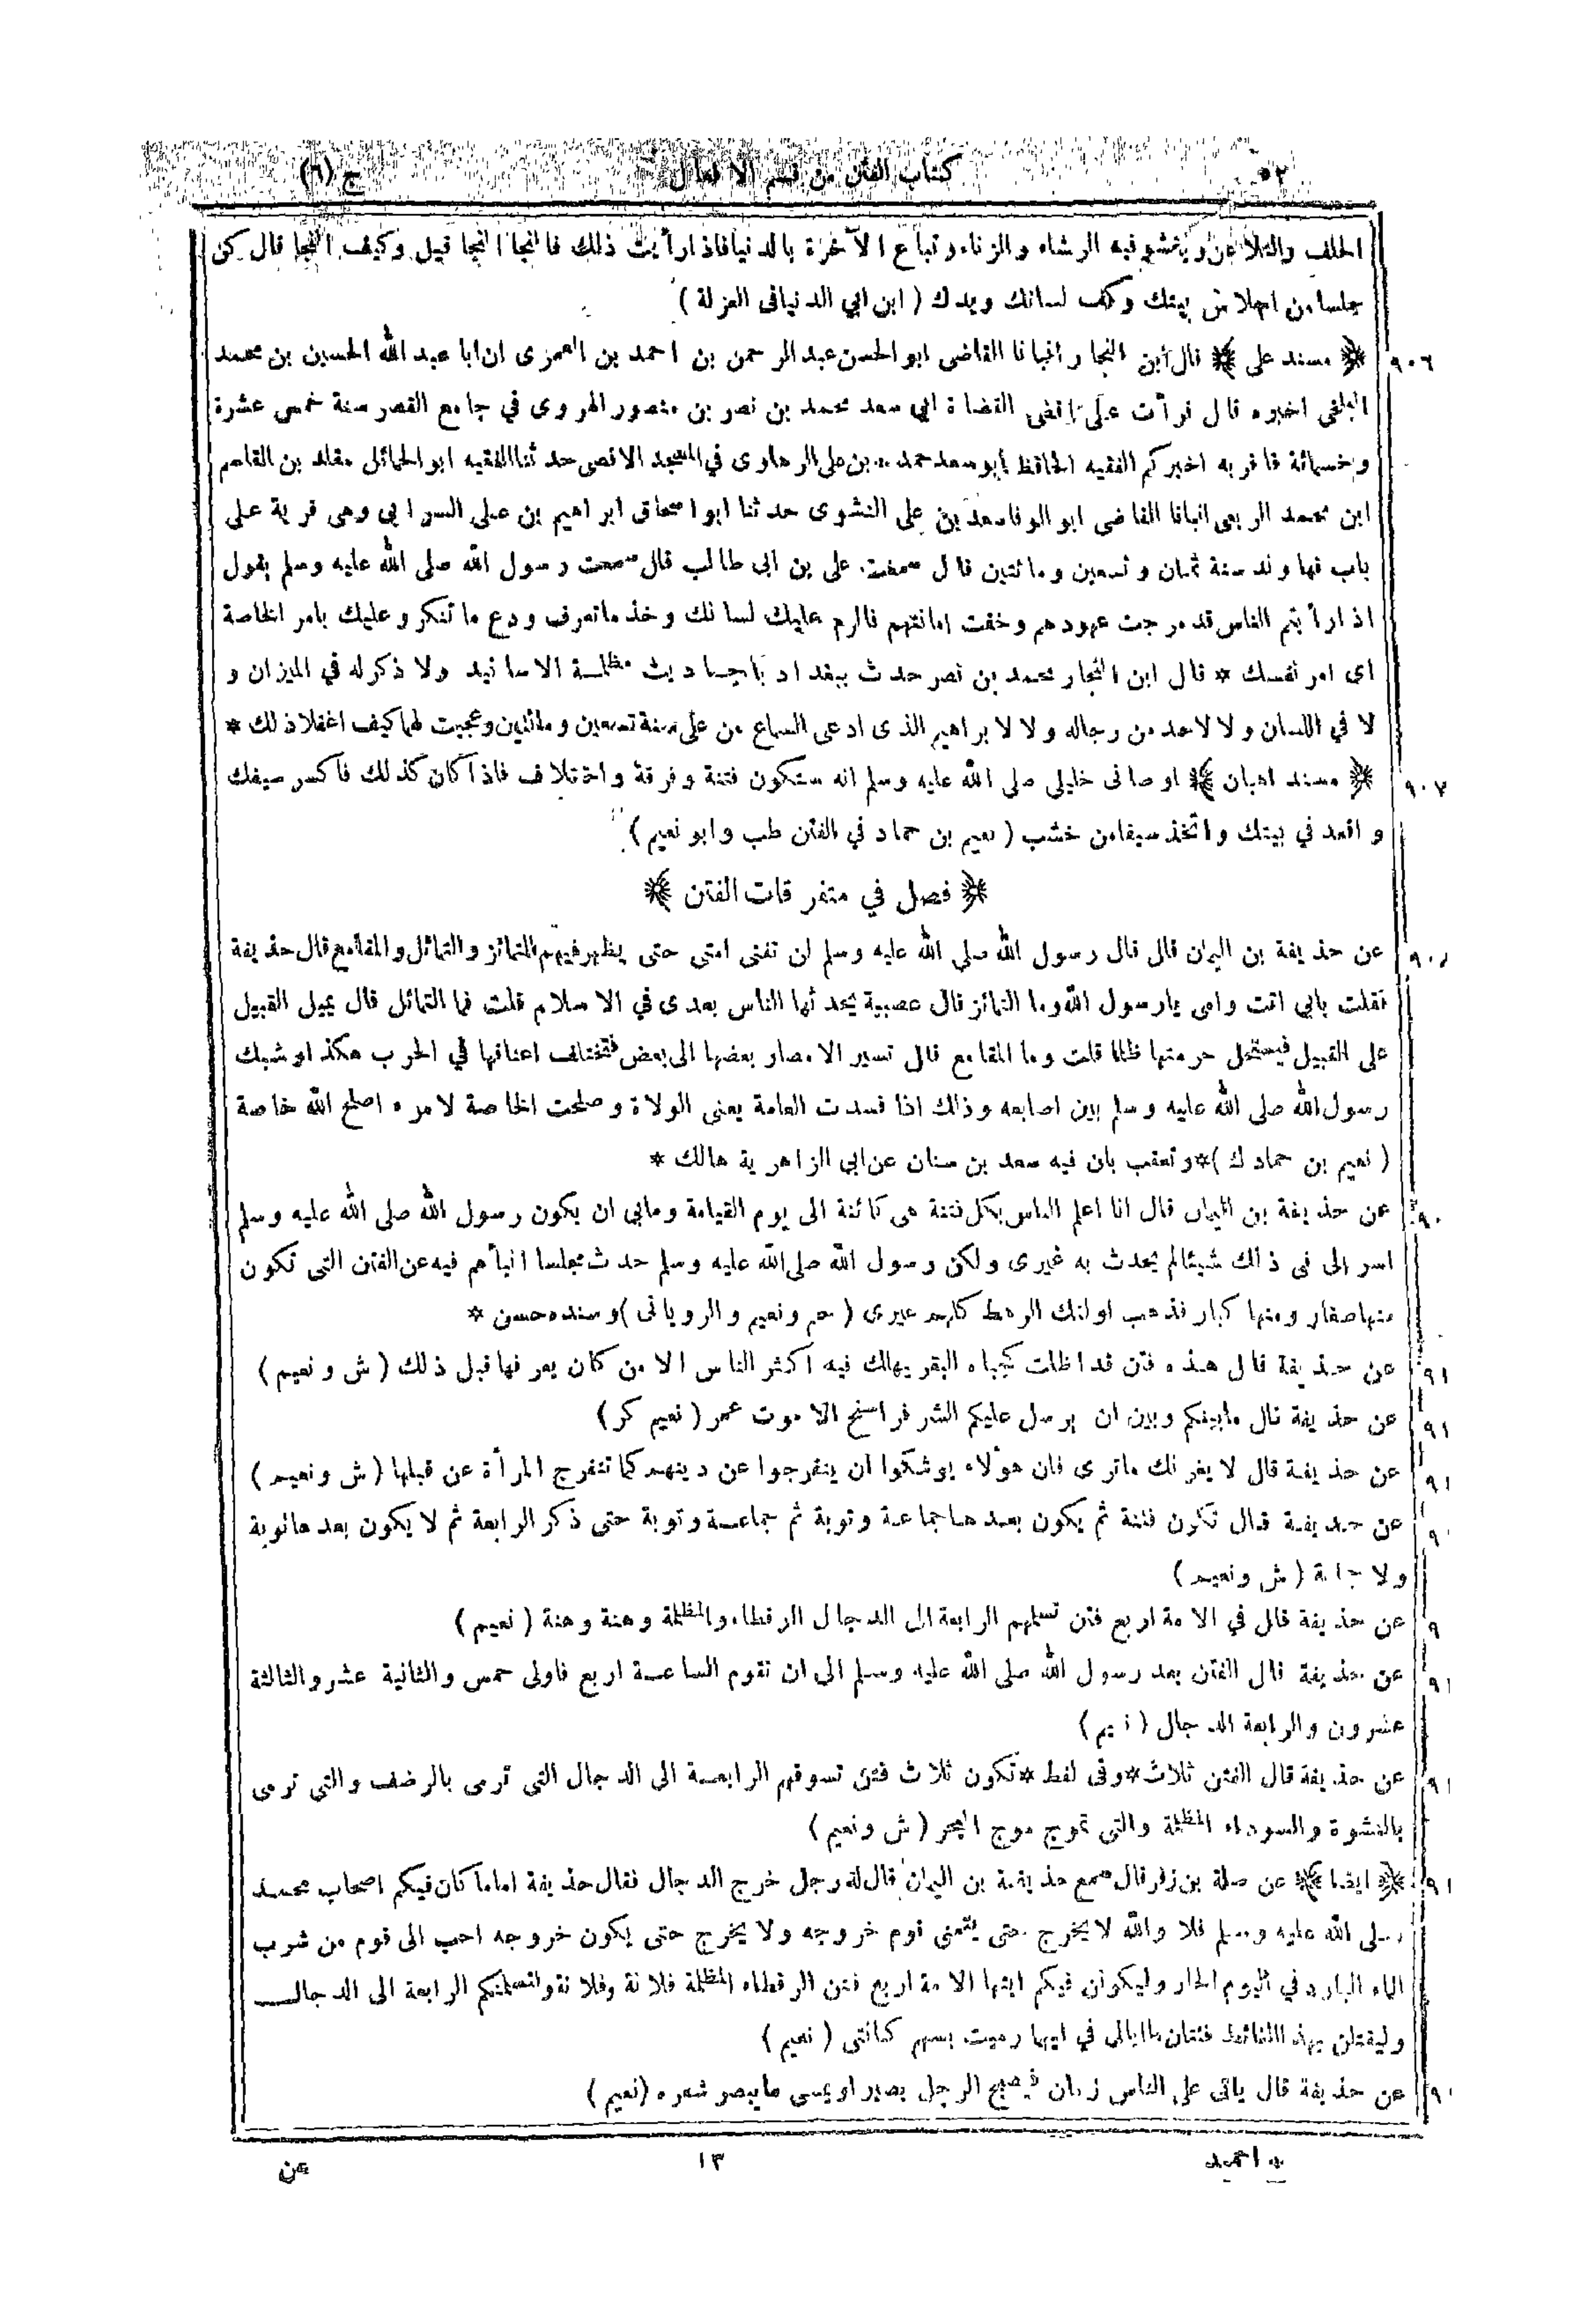 كتاب الفتن من قسم الافعال ج (٦)
الحلف والتلاعن ويفشو فيه الرشاء والزناء وتباع الآخرة بالدنيا فاذا رأيت ذلك فالنجا النجا قيل وكيف النجا قال كن
حلسا من احلاس بيتك وكف لسانك ويدك (ابن ابي الدنيا فى العزلة)
٩٠٦ ﴿ مسند على ﴾ قال ابن النجار انبانا القاضى ابو الحسن عبد الرحمن بن احمد بن العمرى ان ابا عبد الله الحسين بن محمد
البلخى اخبره قال قرأت على اقضى القضاة ابي سعد محمد بن نصر بن منصور الهروى في جامع القصر سنة خمس عشرة
وخمسمائة فاقر به اخبركم الفقيه الحافظ ابو سعد حمد بن على الرهاوى في المسجد الاقصى حدثنا الفقيه ابو الحمائل مقلد بن القاسم
ابن محمد الربعى انبانا القاضى ابو الوفا سعد بن على النشوى حدثنا ابو اسحاق ابراهيم بن على السرابى وهى قرية على
باب نها وند سنة ثمان وتسعين ومائتين قال سمعت على بن ابى طالب قال سمعت رسول الله صلى الله عليه وسلم يقول
اذا رأيتم الناس قد مرجت عهودهم وخفت امانتهم فالزم عليك لسانك وخذ ما تعرف ودع ما تنكر وعليك بامر الخاصة
اى امر نفسك * قال ابن النجار محمد بن نصر حدث ببغداد باحاديث مظلمة الاسانيد ولا ذكر له في الميزان و
لا في اللسان ولا لاحد من رجاله ولا لابراهيم الذى ادعى السماع من على سنة تسعين ومائتين وعجبت لهما كيف اغفلا ذلك *
٩٠٧ ﴿ مسند اهبان ﴾ اوصانى خليلى صلى الله عليه وسلم انه ستكون فتنة وفرقة واختلاف فاذا كان كذلك فاكسر سيفك
واقعد في بيتك واتخذ سيفا من خشب (نعيم بن حماد في الفتن طب وابو نعيم)
﴿ فصل في متفرقات الفتن ﴾
عن حذيفة بن اليمان قال قال رسول الله صلى الله عليه وسلم لن تفنى امتى حتى يظهر فيهم التمائز والتمائل والمقامع قال حذيفة
فقلت بابي انت وامى يارسول الله وما التمائز قال عصبية يحدثها الناس بعدى في الاسلام قلت فما التمائل قال يميل القبيل
على القبيل فيستحل حرمتها ظلما قلت وما المقامع قال تسير الامصار بعضها الى بعض فتختلف اعناقها في الحرب هكذا وشبك
رسول الله صلى الله عليه وسلم بين اصابعه وذلك اذا فسدت العامة يعنى الولاة وصلحت الخاصة لامره اصلح الله خاصة
(نعيم بن حماد ك) * وتعقب بان فيه سعد بن سنان عن ابى الزاهرية هالك *
عن حذيفة بن اليمان قال انا اعلم الناس بكل فتنة هى كائنة الى يوم القيامة ومابى ان يكون رسول الله صلى الله عليه وسلم
اسر الى فى ذلك شيئا لم يحدث به غيرى ولكن رسول الله صلى الله عليه وسلم حدث مجلسا انبأهم فيه عن الفتن التى تكون
منها صغار ومنها كبار فذهب اولئك الرهط كلهم غيرى (حم ونعيم والرويانى) وسنده حسن *
عن حذيفة قال هذه فتن قد اظلت كجباه البقر يهلك فيه اكثر الناس الا من كان يعرفها قبل ذلك (ش ونعيم)
عن حذيفة قال مابينكم وبين ان يرسل عليكم الشر فراسخ الا موت عمر (نعيم كر)
عن حذيفة قال لا يغرنك ماترى فان هؤلاء يوشكوا ان ينفرجوا عن دينهم كما تنفرج المرأة عن قبلها (ش ونعيم)
عن حذيفة قال تكون فتنة ثم يكون بعدها جماعة وتوبة ثم جماعة وتوبة حتى ذكر الرابعة ثم لا يكون بعدها توبة
ولا جماعة (ش ونعيم)
عن حذيفة قال في الامة اربع فتن تسلمهم الرابعة الى الدجال الرقطاء والمظلمة وهنة وهنة (نعيم)
عن حذيفة قال الفتن بعد رسول الله صلى الله عليه وسلم الى ان تقوم الساعة اربع فاولى خمس والثانية عشر والثالثة
عشرون والرابعة الدجال (نعيم)
عن حذيفة قال الفتن ثلاث * وفى لفظ * تكون ثلاث فتن تسوقهم الرابعة الى الدجال التى ترمى بالرضف والتى ترمى
بالنشوة والسوداء المظلمة والتى تموج موج البحر (ش ونعيم)
﴿ ايضا ﴾ عن صلة بن زفر قال سمع حذيفة بن اليمان قال له رجل خرج الدجال فقال حذيفة اما ما كان فيكم اصحاب محمد
صلى الله عليه وسلم فلا والله لا يخرج حتى يتمنى قوم خروجه ولا يخرج حتى يكون خروجه احب الى قوم من شرب
الماء البارد في اليوم الحار وليكونن فيكم ايتها الامة اربع فتن الرقطاء المظلمة فلانة وفلانة ولتسلمنكم الرابعة الى الدجال
وليقتتلن بهذا الغائط فئتان ما ابالى في ايهما رميت بسهم كنانتى (نعيم)
عن حذيفة قال ياتى على الناس زمان فيصبح الرجل بصيرا ويمسى مايبصر شعره (نعيم)
* احميد ١٣ عن